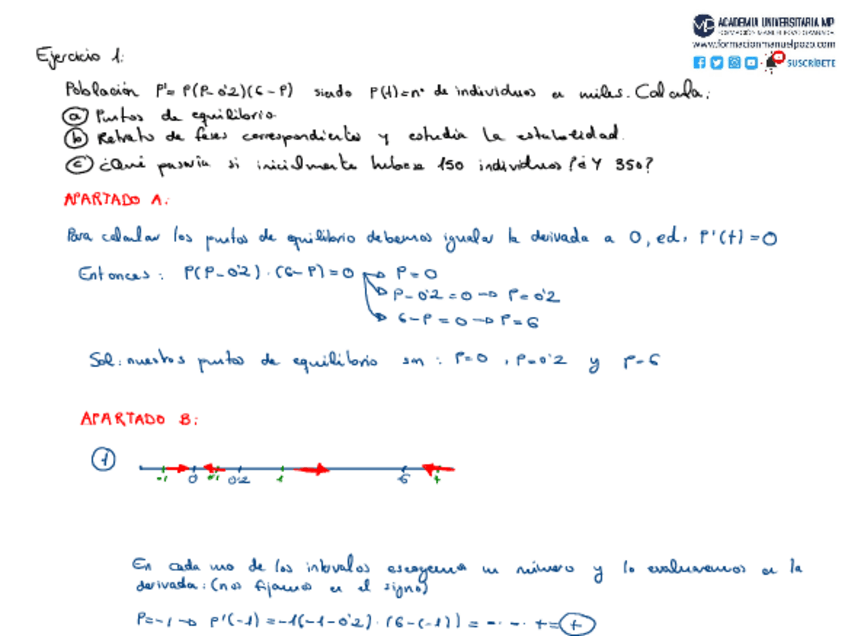 MP ACADEMIA UNIVERSITARIA MP
FORMACIÓN MANUEL POZO GRANADA
www.formacionmanuelpozo.com
SUSCRÍBETE
Ejercicio 1:
Población P'= P(P-0'2)(6-P) siendo P(t)=nº de individuos en miles. Calcula:
a) Puntos de equilibrio
b) Retrato de fases correspondiente y estudia la estabilidad.
c) ¿Qué pasaría si inicialmente hubiese 150 individuos? ¿Y 350?
APARTADO A:
Para calcular los puntos de equilibrio debemos igualar la derivada a 0, e.d, P'(t)=0
Entonces: P(P-0'2)·(6-P)=0 → P=0
→ P-0'2=0 → P=0'2
→ 6-P=0 → P=6
Sol: nuestros puntos de equilibrio son: P=0, P=0'2 y P=6
APARTADO B:
1
-1 0 0'1 0'2 1 6 7
En cada uno de los intervalos escogemos un número y lo evaluaremos en la
derivada: (nos fijamos en el signo)
P=-1 → P'(-1)=-1(-1-0'2)·(6-(-1))= -·-·+=+